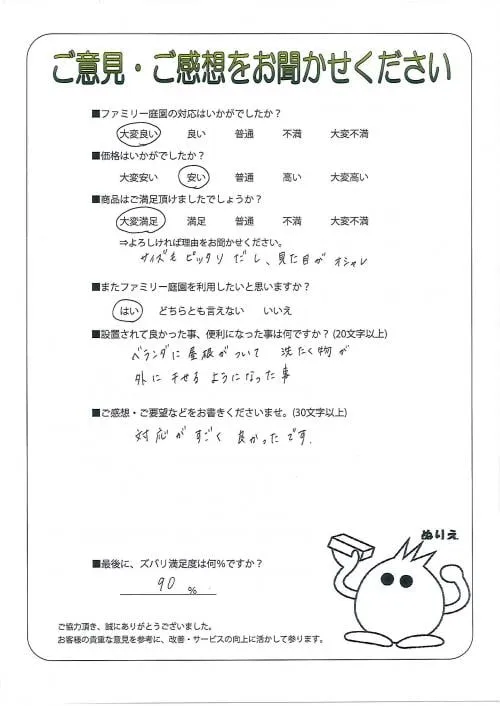 ご意見・ご感想をお聞かせください
■ファミリー庭園の対応はいかがでしたか？
大変良い 良い 普通 不満 大変不満
■価格はいかがでしたか？
大変安い 安い 普通 高い 大変高い
■商品はご満足頂けましたでしょうか？
大変満足 満足 普通 不満 大変不満
⇒よろしければ理由をお聞かせください。
サイズもピッタリだし、見た目がオシャレ
■またファミリー庭園を利用したいと思いますか？
はい どちらとも言えない いいえ
■設置されて良かった事、便利になった事は何ですか？(20文字以上)
ベランダに屋根がついて 洗たく物が
外に干せるようになった事
■ご感想・ご要望などをお書きくださいませ。(30文字以上)
対応がすごく良かったです.
ぬりえ
■最後に、ズバリ満足度は何%ですか？
90 %
ご協力頂き、誠にありがとうございました。
お客様の貴重な意見を参考に、改善・サービスの向上に活かして参ります。